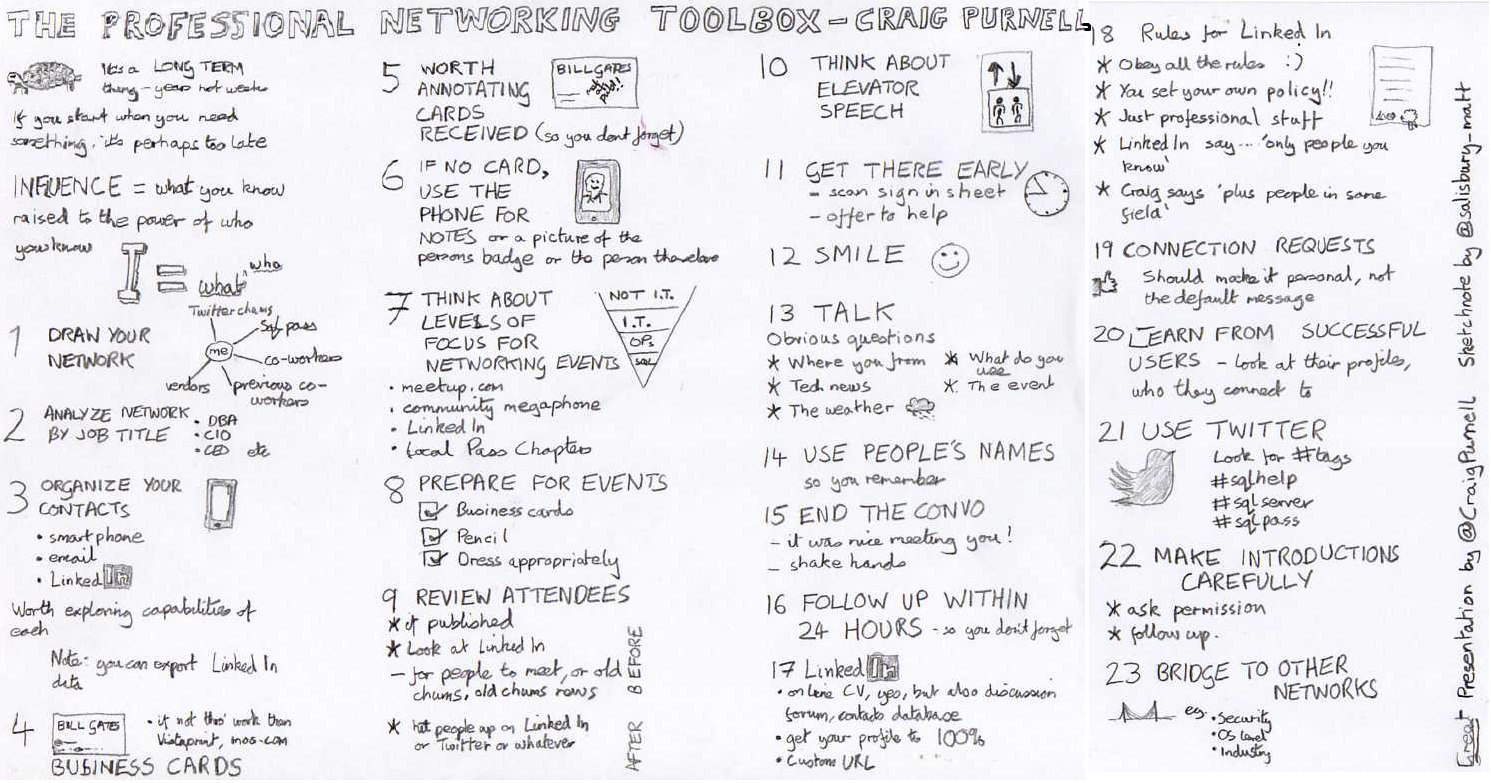 THE PROFESSIONAL NETWORKING TOOLBOX - CRAIG PURNELL
It's a LONG TERM
thing - years not weeks
If you start when you need
something, it's perhaps too late
INFLUENCE = what you know
raised to the power of who
you know
I = what who
1 DRAW YOUR
NETWORK
Twitter chums
Sql pass
me
co-workers
vendors
previous co-
workers
2 ANALYZE NETWORK
BY JOB TITLE
• DBA
• CIO
• CEO etc
3 ORGANIZE YOUR
CONTACTS
• smartphone
• email
• Linked in
Worth exploring capabilities of
each
Note: you can export Linked In
data
4 BILL GATES
• if not thro' work then
Vistaprint, moo.com
BUSINESS CARDS
5 WORTH
ANNOTATING
CARDS
RECEIVED (so you dont forget)
BILL GATES
6 IF NO CARD,
USE THE
PHONE FOR
NOTES or a picture of the
persons badge or the person themselves
7 THINK ABOUT
LEVELS OF
FOCUS FOR
NETWORKING EVENTS
NOT I.T.
I.T.
OPs
SQL
• meetup.com
• community megaphone
• Linked In
• Local Pass Chapters
8 PREPARE FOR EVENTS
Business cards
Pencil
Dress appropriately
9 REVIEW ATTENDEES
* if published
* Look at Linked In
- for people to meet, or old
chums, old chums news
BEFORE
* hit people up on Linked In
or Twitter or whatever
AFTER
10 THINK ABOUT
ELEVATOR
SPEECH
11 GET THERE EARLY
- scan sign in sheet
- offer to help
12 SMILE
13 TALK
Obvious questions
* Where you from
* What do you
use
* Tech news
* The event
* The weather
14 USE PEOPLE'S NAMES
so you remember
15 END THE CONVO
- it was nice meeting you!
- shake hands
16 FOLLOW UP WITHIN
24 HOURS - so you don't forget
17 Linked in
• online CV, yes, but also discussion
forum, contacts database
• get your profile to 100%
• Custom URL
18 Rules for Linked In
* Obey all the rules :)
* You set your own policy!!
* Just professional stuff
* Linked In say... 'only people you
know'
* Craig says 'plus people in same
field'
19 CONNECTION REQUESTS
Should make it personal, not
the default message
20 LEARN FROM SUCCESSFUL
USERS - look at their profiles,
who they connect to
21 USE TWITTER
Look for #tags
#sqlhelp
#sqlserver
#sqlpass
22 MAKE INTRODUCTIONS
CAREFULLY
* ask permission
* follow up.
23 BRIDGE TO OTHER
NETWORKS
eg. • Security
• OS level
• Industry
Great Presentation by @CraigPurnell Sketchnote by @salisbury-matt